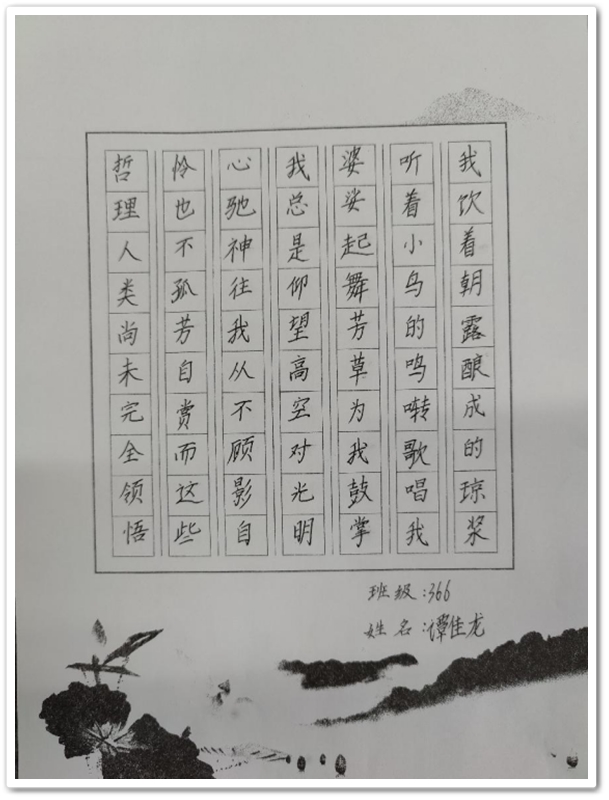 我饮着朝露酿成的琼浆
听着小鸟的鸣啭歌唱我
婆娑起舞芳草为我鼓掌
我总是仰望高空对光明
心驰神往我从不顾影自
怜也不孤芳自赏而这些
哲理人类尚未完全领悟
班级:366
姓名:谭佳龙